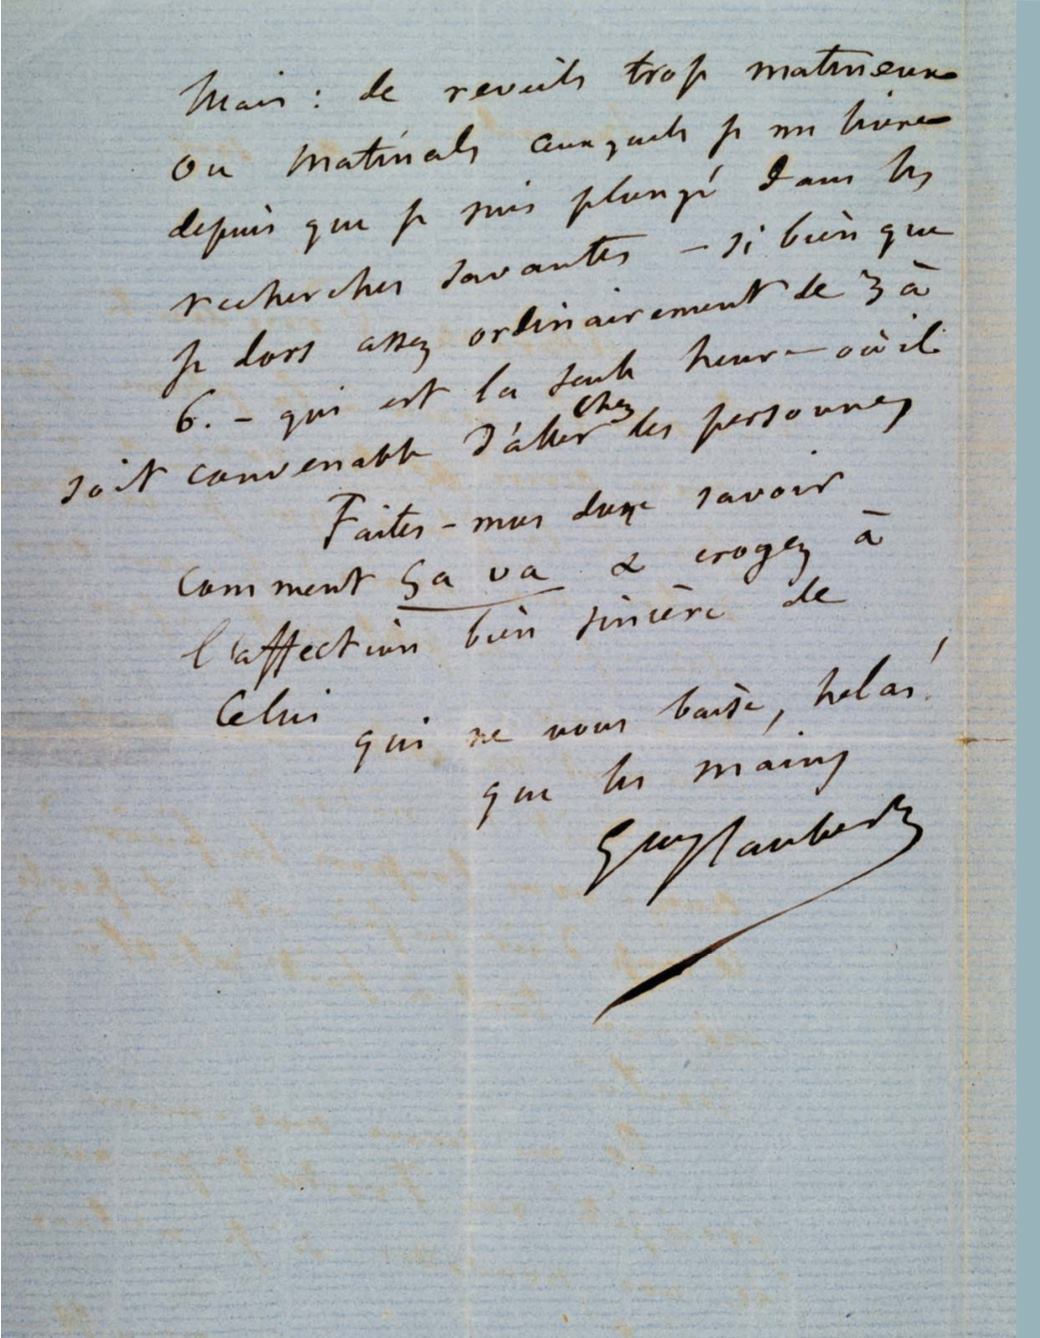 Mais : de reveils trop matineux
ou matinals auxquels je me livre
depuis que je suis plongé dans les
recherches savantes – si bien que
je dors assez ordinairement de 3 à
6. – qui est la seule heure – où il
soit convenable d'aller chez les personnes
Faites-moi donc savoir
comment ça va & croyez à
l'affection bien sincère de
Celui
qui ne vous baise, helas!
que les mains
Gve Flaubert